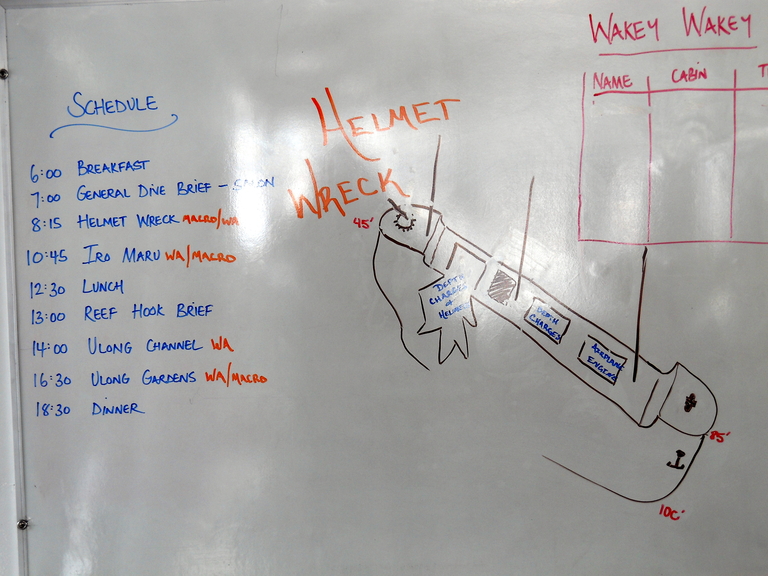 SCHEDULE
6:00 BREAKFAST
7:00 GENERAL DIVE BRIEF - SALON
8:15 HELMET WRECK MACRO/WA
10:45 IRO MARU WA/MACRO
12:30 LUNCH
13:00 REEF HOOK BRIEF
14:00 ULONG CHANNEL WA
16:30 ULONG GARDENS WA/MACRO
18:30 DINNER
HELMET
WRECK
45'
DEPTH
CHARGES
&
HELMETS
DEPTH
CHARGES
AIRPLANE
ENGINES
85'
100'
WAKEY WAKEY
NAME CABIN T